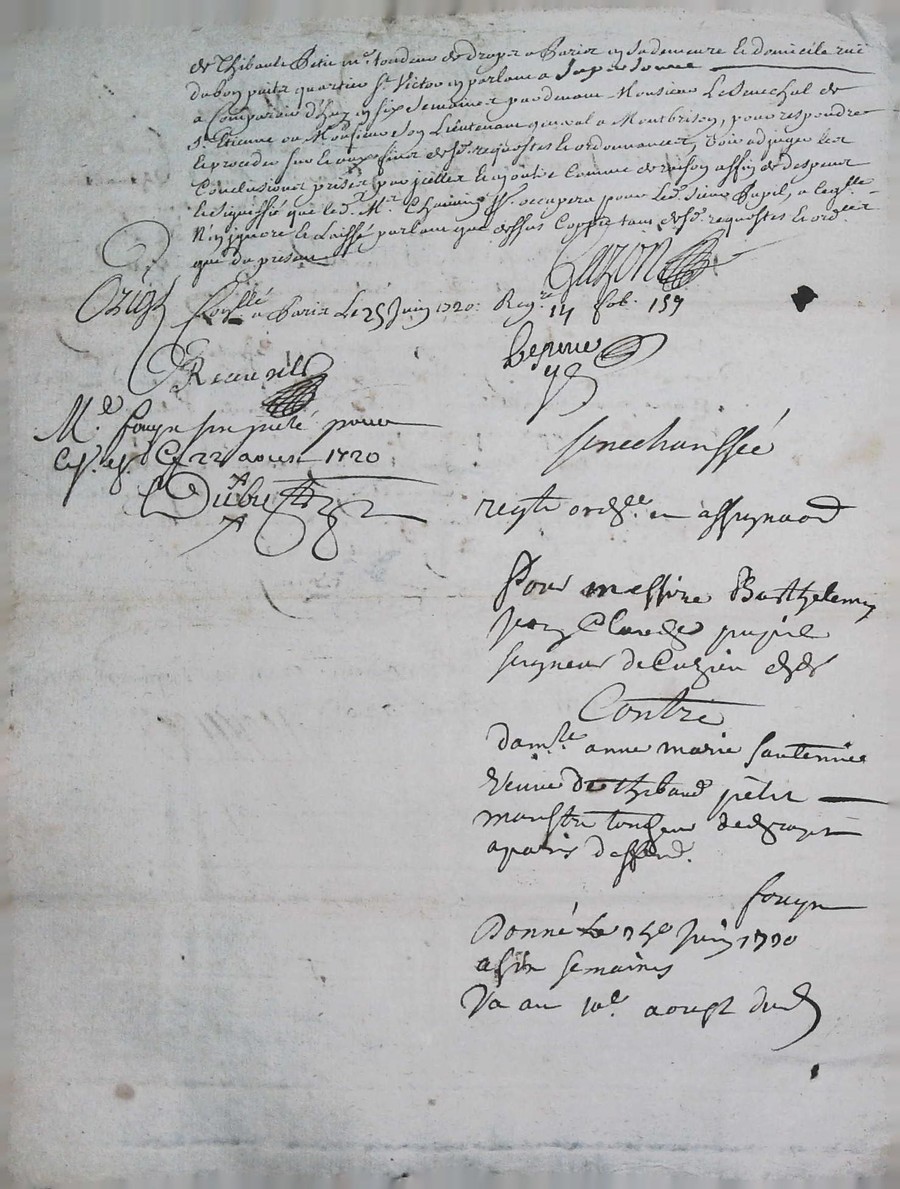 de Thibault Petit me. tondeur de draps a Paris en sa demeure & domicile ruë
du bon puits quartier St. Victor en parlant a sa personne
a comparoir d'huy en six semaines pardevant Monsieur Le Senechal de
St. Etienne ou Monsieur son Lieutenant general a Montbrison, pour respondre
& proceder sur & aux fins desd. requestes & ordonnances, voir adjuger les
Conclusions prises par icelles & en outre comme de raison affin de despens
& signiffié que led. Mr. occupera pour led. sieur Pupil, a ce qlle.
n'en ignore & Laissé parlant que dessus Coppie tant desd. requestes & ordces.
que du present
Gazon
Orig.
Conllé. a Paris Le 25 Juin 1720. Reg. 14 fol. 159
Lepine
Me. fouyn pour
22 aoust 1720
Dubu
senechaussée
regte ordce. en assignaon
Pour messire Barthelemy
Jean Claude pupil
seigneur de Cuzieu
Contre
damlle anne marie
veuve de thibaud petit
maistre tondeur de draps
a paris deffend.
fouyn
Donné Le 25e Juin 1720
a six semaines
Va au 10e aoust dud